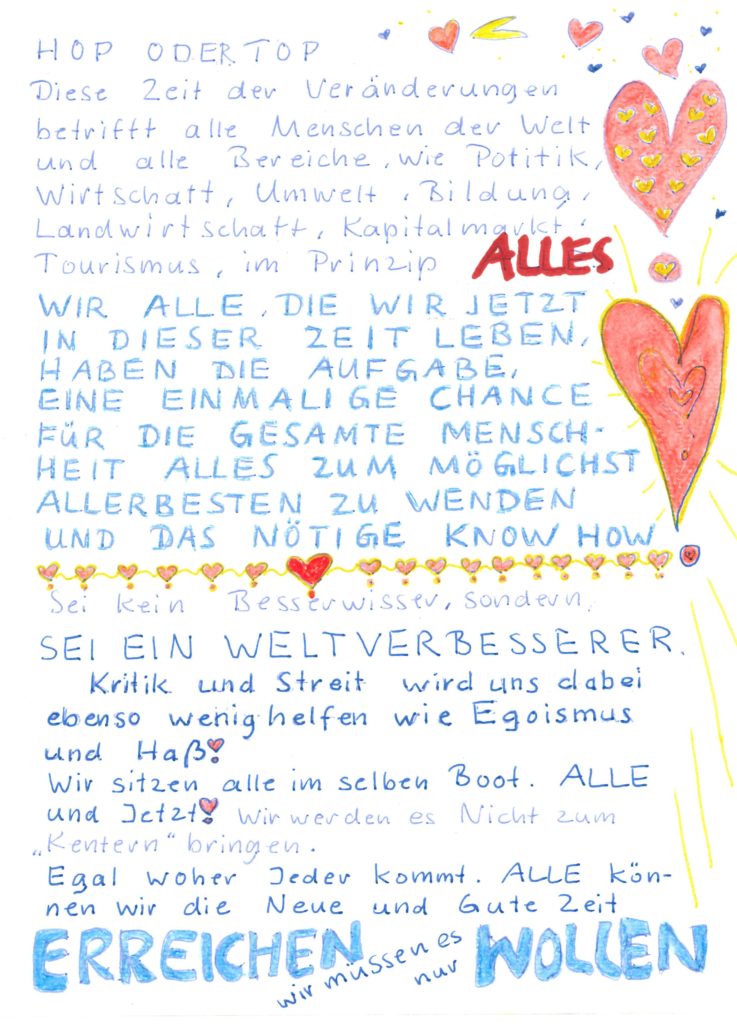 HOP ODER TOP
Diese Zeit der Veränderungen
betrifft alle Menschen der Welt
und alle Bereiche, wie Potitik,
Wirtschaft, Umwelt, Bildung,
Landwirtschaft, Kapitalmarkt,
Tourismus, im Prinzip ALLES
WIR ALLE, DIE WIR JETZT
IN DIESER ZEIT LEBEN,
HABEN DIE AUFGABE,
EINE EINMALIGE CHANCE
FÜR DIE GESAMTE MENSCH-
HEIT ALLES ZUM MÖGLICHST
ALLERBESTEN ZU WENDEN
UND DAS NÖTIGE KNOW HOW
Sei kein Besserwisser, sondern,
SEI EIN WELTVERBESSERER.
Kritik und Streit wird uns dabei
ebenso wenig helfen wie Egoismus
und Haß!
Wir sitzen alle im selben Boot. ALLE
und Jetzt! Wir werden es Nicht zum
„Kentern" bringen.
Egal woher Jeder kommt. ALLE kön-
nen wir die Neue und Gute Zeit
ERREICHEN wir müssen es nur WOLLEN